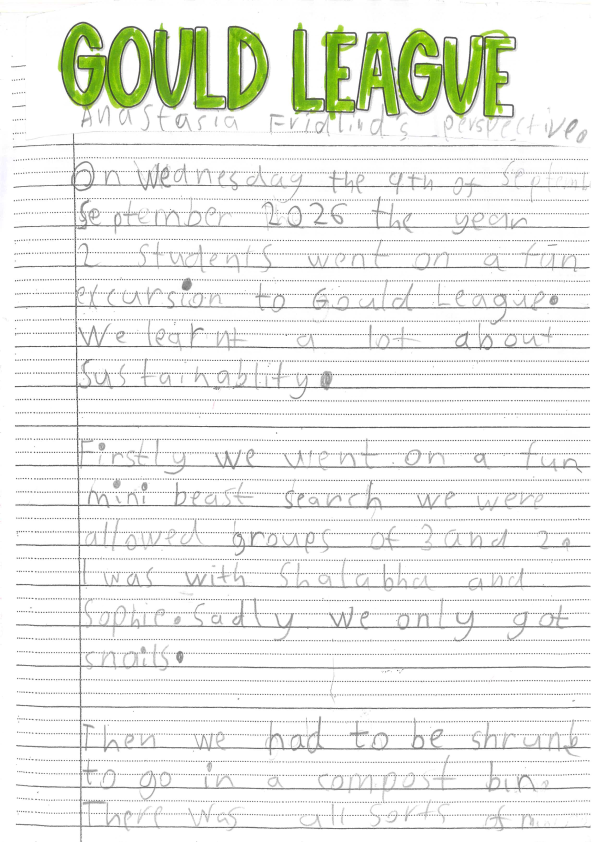 GOULD LEAGUE
Anastasia Fridlind's perspective.
On Wednesday the 9th of Septemb
September 2026 the year
2 students went on a fun
excursion to Gould League.
We learnt a lot about
Sustainablity.
Firstly we went on a fun
mini beast search we were
allowed groups of 3 and 2.
I was with Shalabha and
Sophie. Sadly we only got
snails.
Then we had to be shrunk
to go in a compost bin.
There was all sorts of